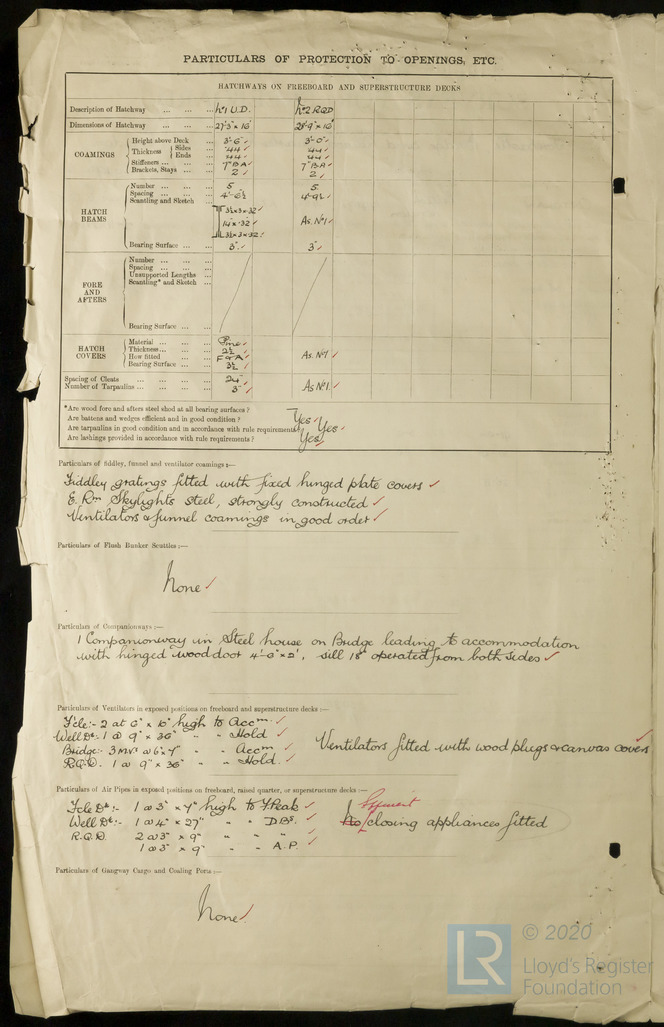 PARTICULARS OF PROTECTION TO OPENINGS, ETC.
HATCHWAYS ON FREEBOARD AND SUPERSTRUCTURE DECKS
Description of Hatchway ... ... ... No 1 U.D. No 2 RQD
Dimensions of Hatchway ... ... ... 27'-3" x 16' 28'-9" x 16'
COAMINGS
Height above Deck ... 3'-6" ✓ 3'-0" ✓
Thickness Sides ... .44 ✓ .44 ✓
Ends ... .44 ✓ .44 ✓
Stiffeners ... ... ... 7" BA ✓ 7" BA ✓
Brackets, Stays ... ... 2 ✓ 2 ✓
HATCH BEAMS
Number ... ... ... 5 5
Spacing ... ... ... 4'-6½ 4'-9½ ✓
Scantling and Sketch ... 3½ x 3 x .32 ✓
14" x .32 ✓ As. No 1 ✓
3½ x 3 x .32 ✓
Bearing Surface ... ... 3" ✓ 3" ✓
FORE AND AFTERS
Number ... ... ...
Spacing ... ... ...
Unsupported Lengths ...
Scantling* and Sketch ...
Bearing Surface ... ...
HATCH COVERS
Material ... ... ... Pine ✓
Thickness ... ... ... 2½ ✓
How fitted ... ... F & A ✓ As. No 1 ✓
Bearing Surface ... ... 3½ ✓
Spacing of Cleats ... ... ... ... 24" ✓
Number of Tarpaulins ... ... ... ... 3 ✓ As No 1. ✓
*Are wood fore and afters steel shod at all bearing surfaces ?
Are battens and wedges efficient and in good condition ? Yes ✓
Are tarpaulins in good condition and in accordance with rule requirements ? Yes ✓
Are lashings provided in accordance with rule requirements ? Yes ✓
Particulars of fiddley, funnel and ventilator coamings :—
Fiddley gratings fitted with fixed hinged plate covers ✓
E. Rm Skylights steel, strongly constructed ✓
Ventilators & funnel coamings in good order ✓
Particulars of Flush Bunker Scuttles :—
None ✓
Particulars of Companionways :—
1 Companionway in Steel house on Bridge leading to accommodation
with hinged wood door 4'-6" x 2', sill 18" operated from both sides ✓
Particulars of Ventilators in exposed positions on freeboard and superstructure decks :—
Fcle:- 2 at 6" x 10" high to Accm. ✓
Well Dk. 1 @ 9" x 36" " " Hold ✓
Bridge:- 3 M.V.s @ 6" x 7" - - Accm ✓ Ventilators fitted with wood plugs & canvas covers ✓
R.Q.D. 1 @ 9" x 36" " " Hold. ✓
Particulars of Air Pipes in exposed positions on freeboard, raised quarter, or superstructure decks :—
Fcle Dk:- 1 @ 3" x 7" high to F Peak ✓ Efficient
Well Dk:- 1 @ 4" x 27" " " D.Bs. ✓ No closing appliances fitted
R.Q.D. 2 @ 3" x 9" " " " ✓
1 @ 3" x 9" - - A.P. ✓
Particulars of Gangway Cargo and Coaling Ports :—
None ✓
LR
© 2020
Lloyd's Register
Foundation